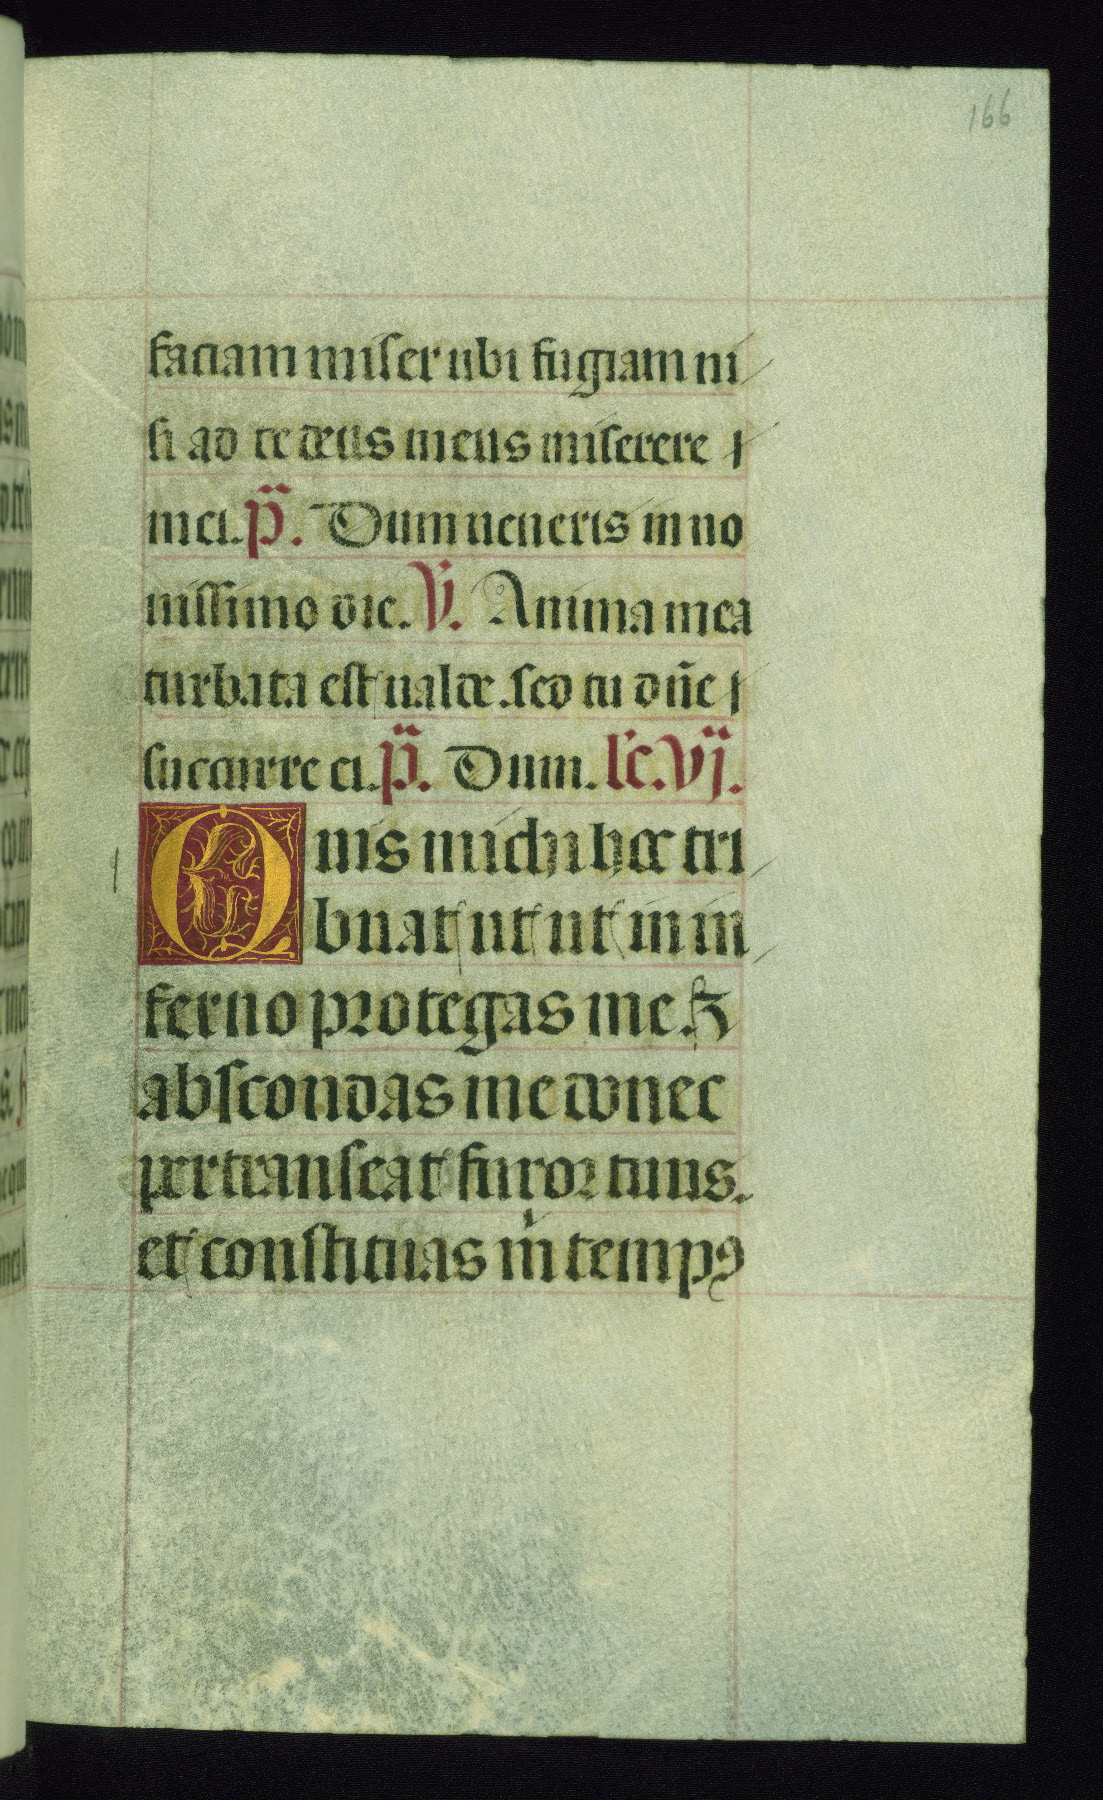 166
faciam miser ubi fugiam ni
si ad te deus meus miserere
mei. p̃. Dum ueneris in no
uissimo die. V̇. Anima mea
turbata est ualde. sed tu dñe
succurre ei. p̃. Dum. lc̃. vj.
Quis michi hoc tri
buat ut ut in in
ferno protegas me. ⁊
abscondas me donec
pertranseat furor tuus.
et constituas m̃ tempꝰ